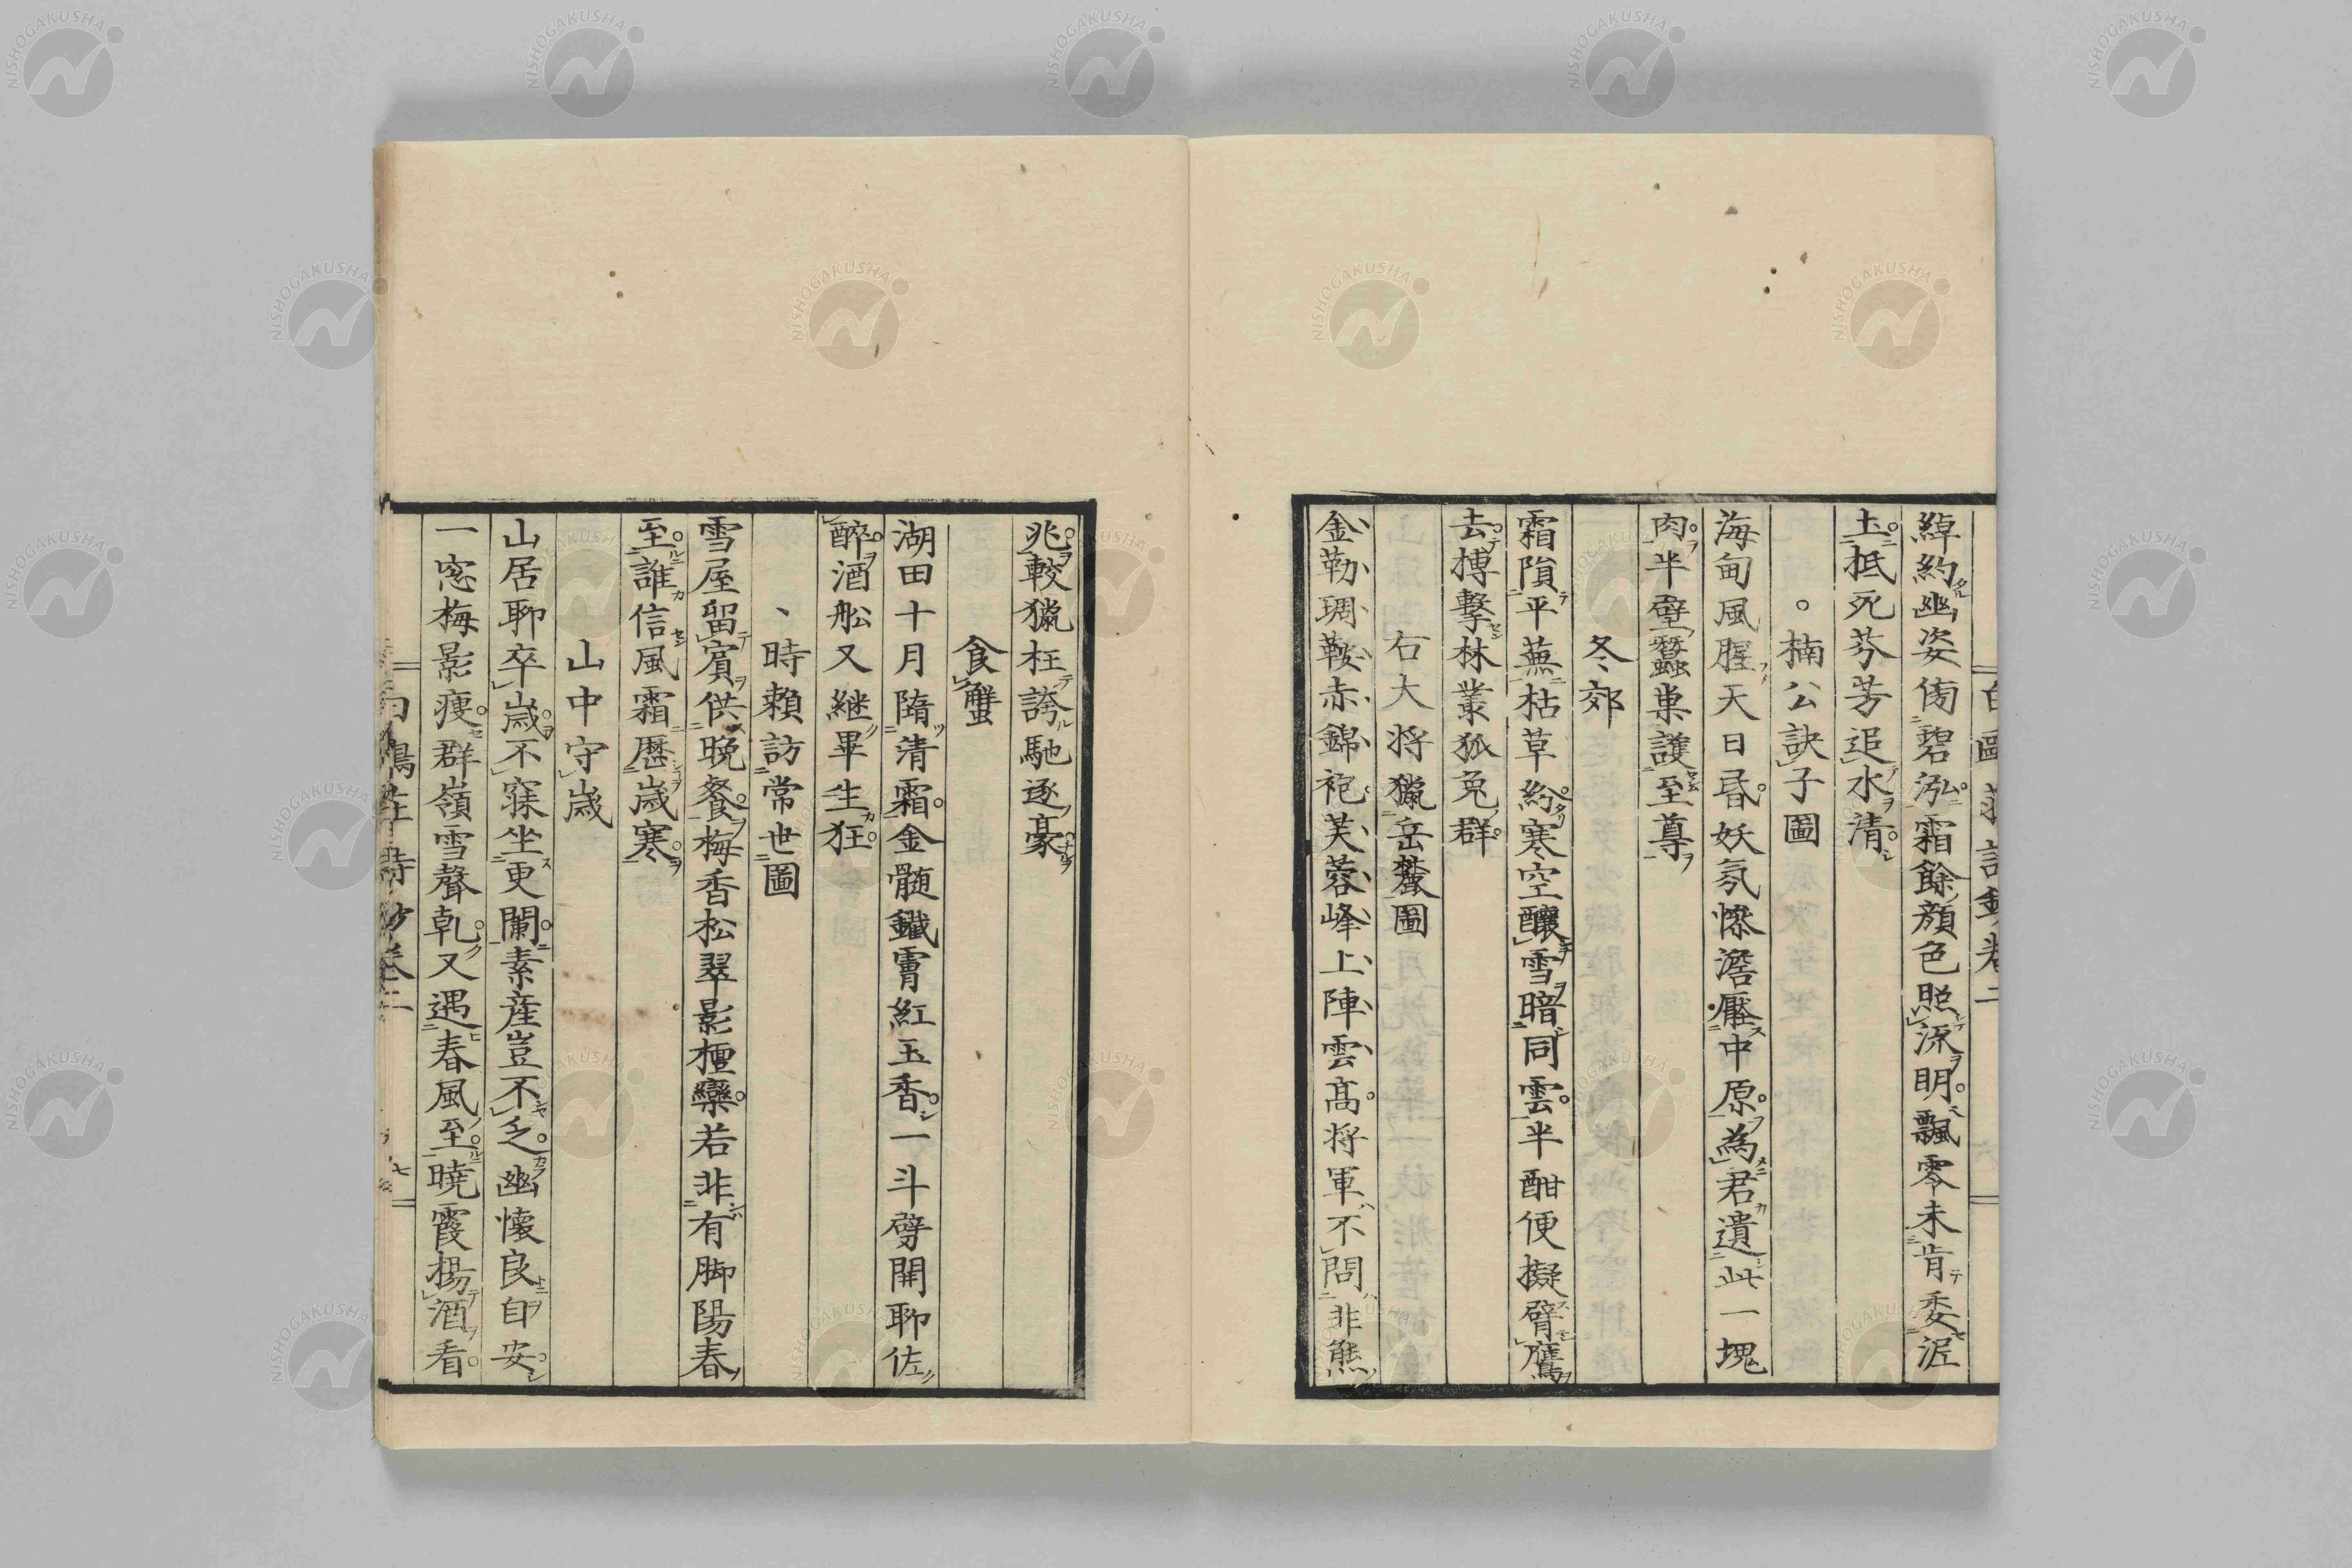 綽約幽姿傍碧泓霜餘顔色照流明飄零未肯委泥
土抵死芬芳追水清
楠公訣子圖
海甸風腥天日昏妖氛惨澹壓中原為君遺此一塊
肉半壁蠶巣護至尊
冬郊
霜隕平蕪枯草紛寒空釀雪暗同雲半酣便擬臂鷹
去搏擊林叢狐兎群
右大将獵岳麓圖
金勒琱鞍赤錦袍芙蓉峰上陣雲髙将軍不問非熊
兆較獵枉誇馳逐豪
食蟹
湖田十月隋清霜金髄鐵膏紅玉香一斗劈開聊佐
醉酒舩又継畢生狂
時頼訪常世圖
雪屋留賓供晩餐梅香松翠影檀欒若非有脚陽春
至誰信風霜歴歳寒
山中守歳
山居聊卒歳不寐坐更闌素産豈不乏幽懐良自安
一窓梅影痩群嶺雪聲乹又遇春風至曉霞揚酒看
NISHOGAKUSHA